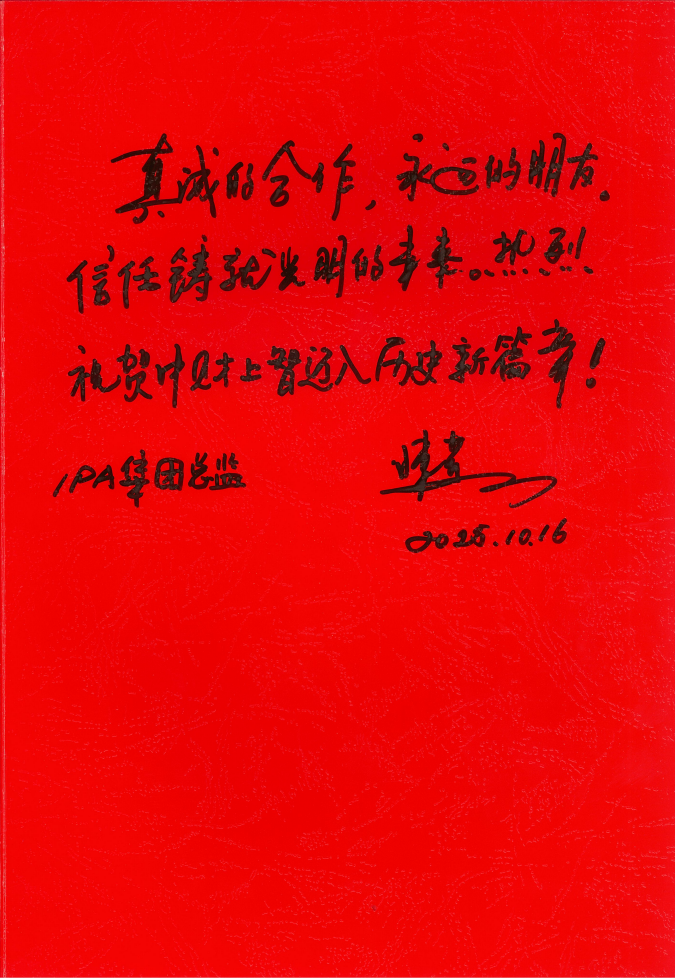 真诚的合作，永远的朋友。
信任铸就光明的未来。热烈
祝贺中财上智迈入历史新篇章！
IPA集团总监
2025.10.16